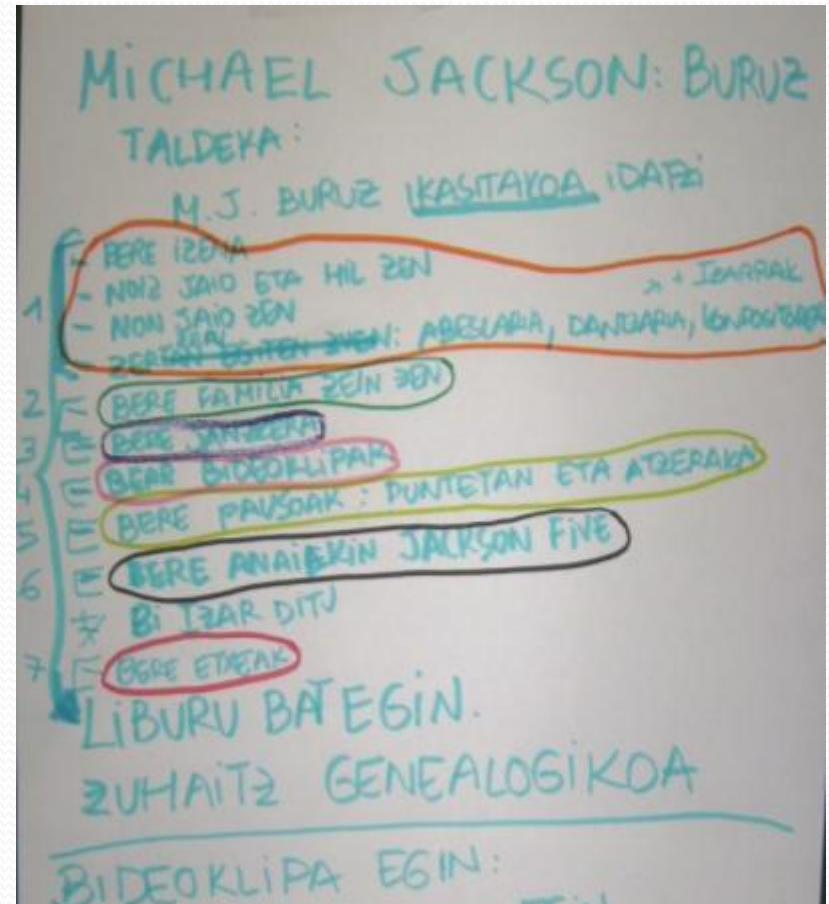 MICHAEL JACKSON: BURUZ
TALDEKA:
M.J. BURUZ IKASITAKOA IDATZI
- BERE IZENA
- NOIZ JAIO ETA HIL ZEN
→ + IZARRAK
1 - NON JAIO ZEN
EGITEN ZUEN: ABESLARIA, DANTZARIA, KONPOSITOREA
2 - BERE FAMILIA ZEIN ZEN
3 - BERE JANTZERA
4 - BERE BIDEOKLIPAK
5 - BERE PAUSOAK: PUNTETAN ETA ATZERAKA
6 - BERE ANAIEKIN JACKSON FIVE
BI IZAR DITU
7 - BERE ETXEAK
LIBURU BAT EGIN.
ZUHAITZ GENEALOGIKOA
BIDEOKLIPA EGIN: